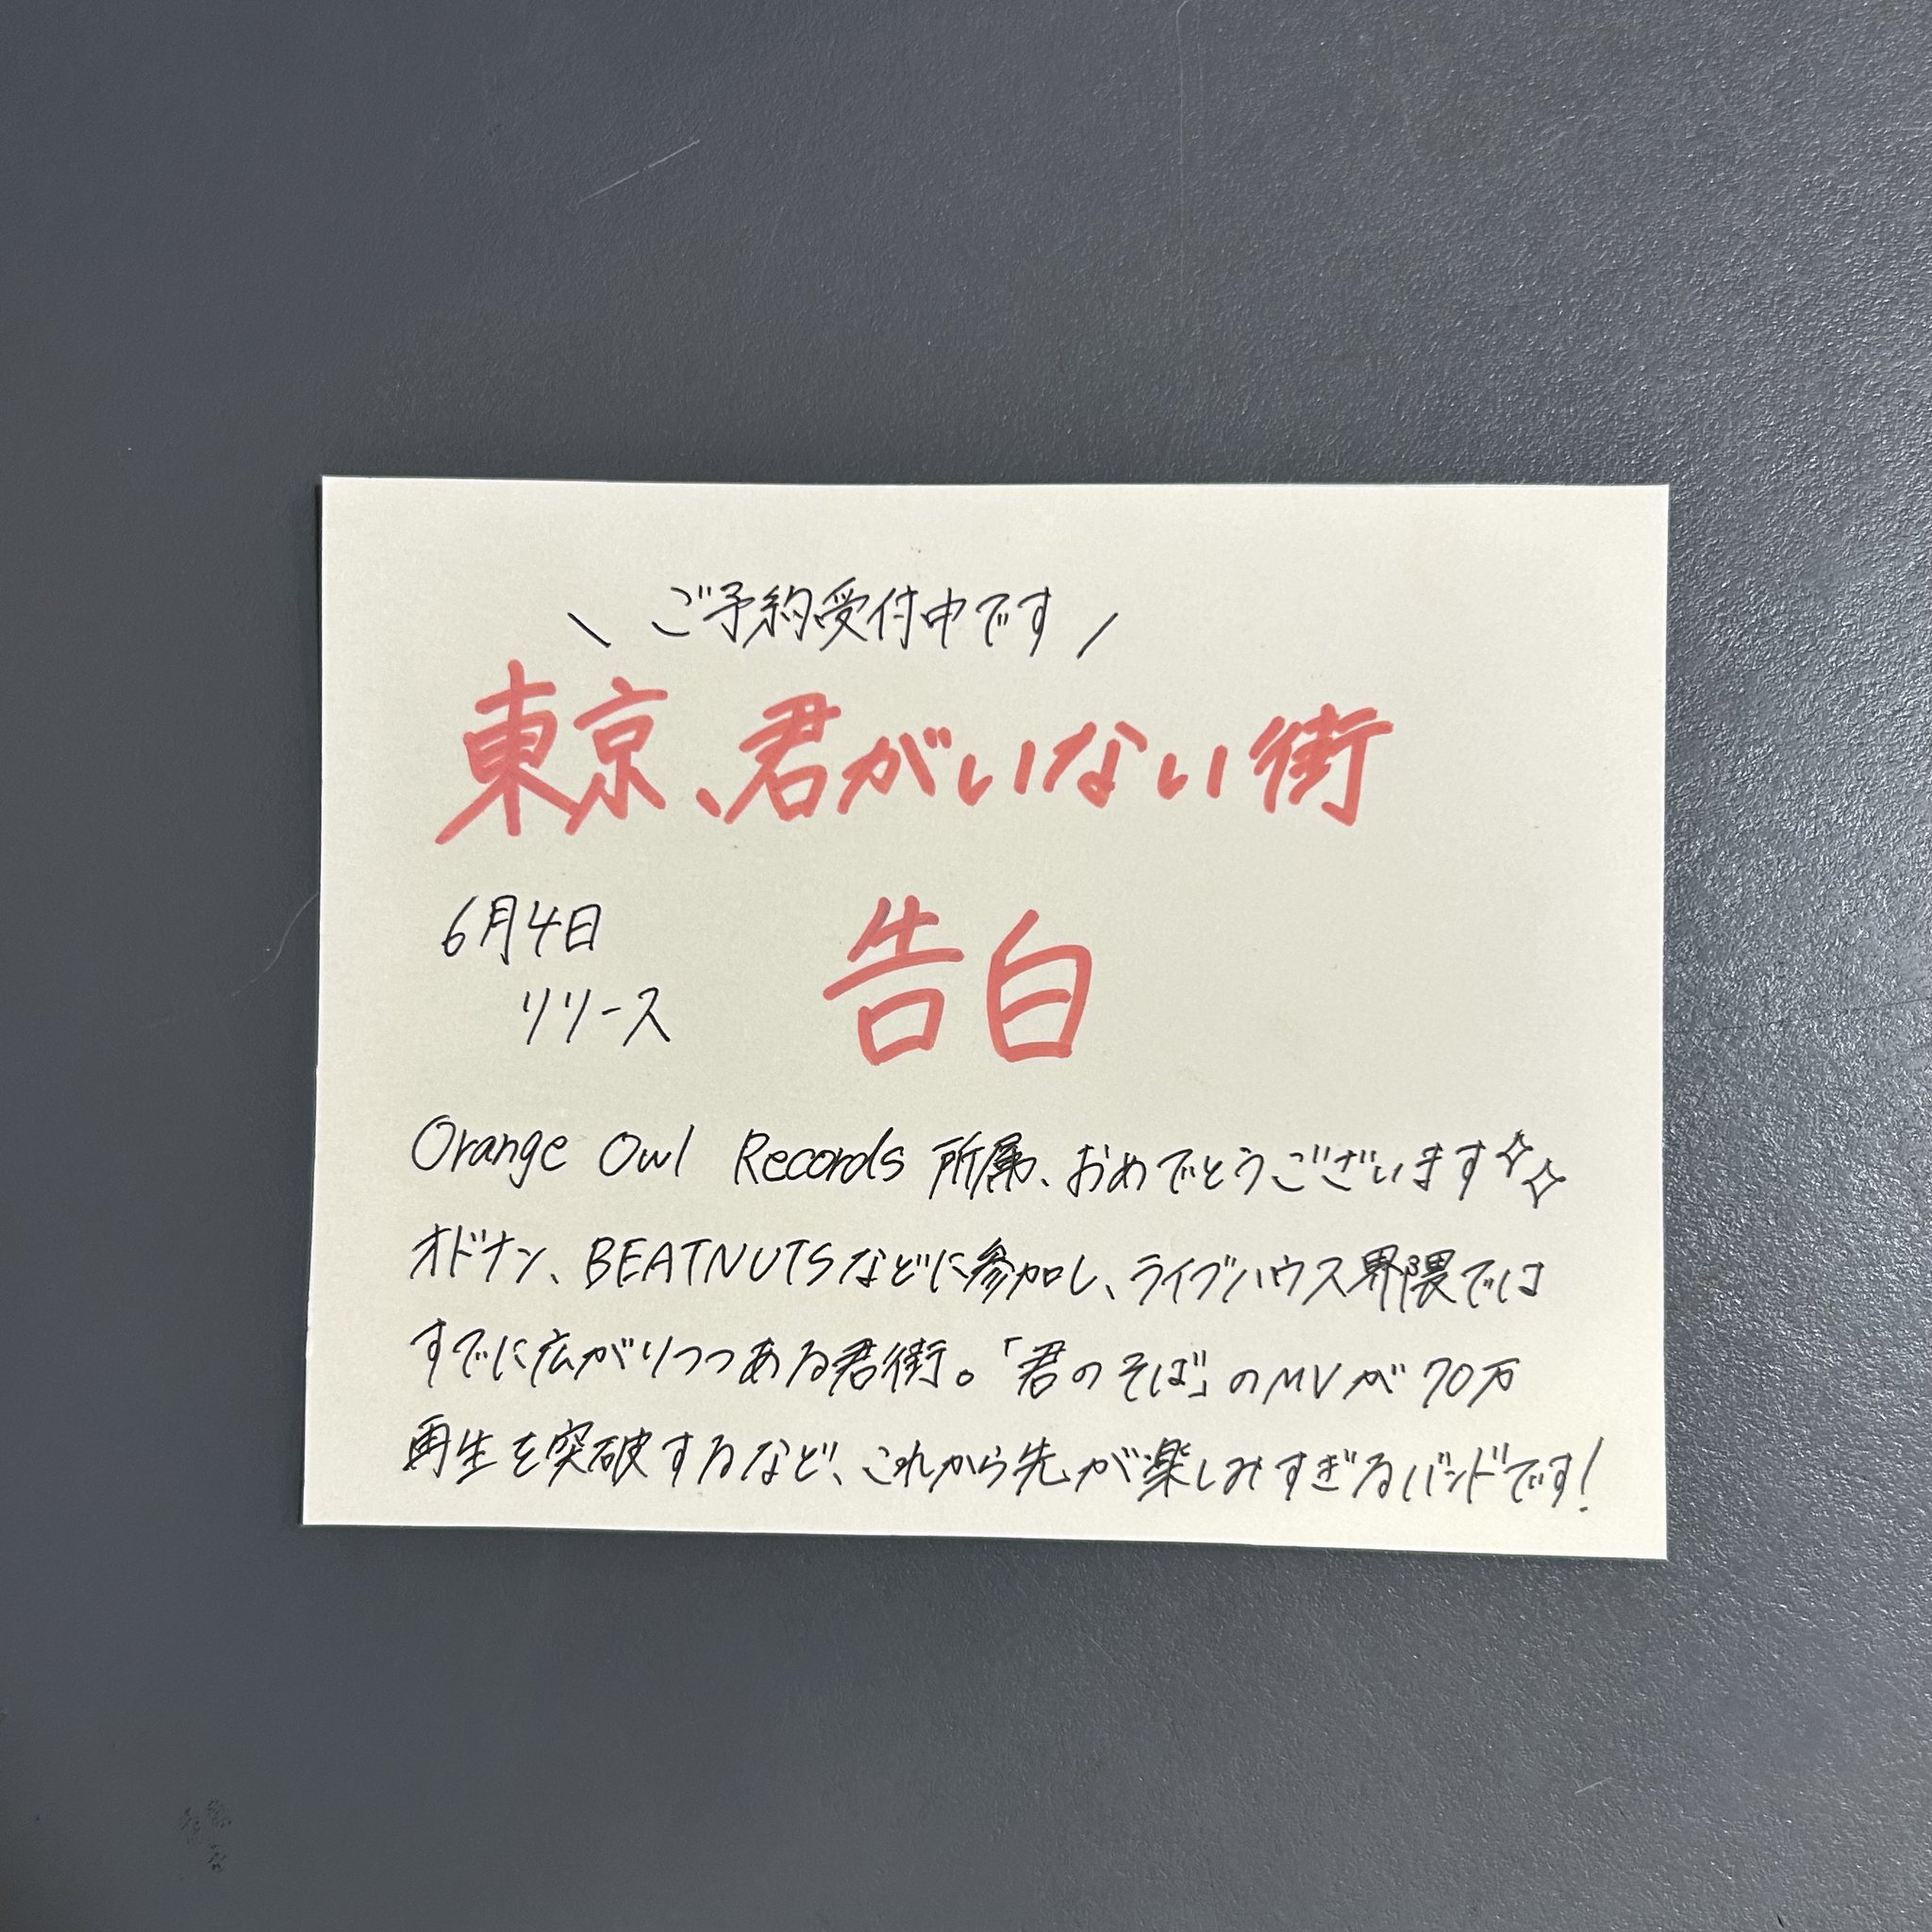 \ ご予約受付中です /
東京、君がいない街
6月4日
リリース
告白
Orange Owl Records 所属、おめでとうございます✧✧
オドナン、BEATNUTSなどに参加し、ライブハウス界隈では
すでに広がりつつある君街。「君のそば」のMVが70万
再生を突破するなど、これから先が楽しみすぎるバンドです!